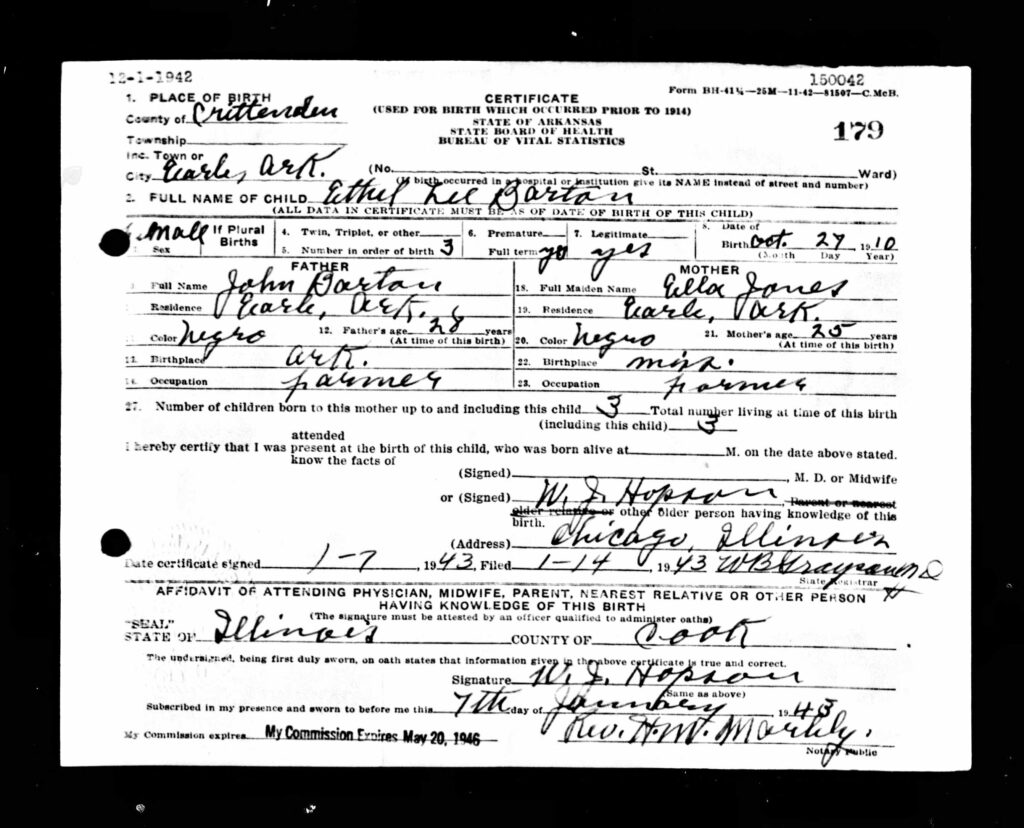 12-1-1942
150042
Form BH-41¼—25M—11-42—81507—C.McB.
1. PLACE OF BIRTH
County of Crittenden
CERTIFICATE
(USED FOR BIRTH WHICH OCCURRED PRIOR TO 1914)
STATE OF ARKANSAS
STATE BOARD OF HEALTH
BUREAU OF VITAL STATISTICS
179
Township
Inc. Town or
City Earle, Ark. (No. St. Ward)
(If birth occurred in a hospital or institution give its NAME instead of street and number)
2. FULL NAME OF CHILD Ethel Lee Barton
(ALL DATA IN CERTIFICATE MUST BE AS OF DATE OF BIRTH OF THIS CHILD)
Sex Male If Plural Births 4. Twin, Triplet, or other 6. Premature 7. Legitimate 8. Date of
5. Number in order of birth 3 Full term yes Birth Oct. 27 1910
(Month Day Year)
FATHER MOTHER
Full Name John Barton 18. Full Maiden Name Ella Jones
Residence Earle, Ark. 19. Residence Earle, Ark.
Color Negro 12. Father's age 28 years 20. Color Negro 21. Mother's age 25 years
(At time of this birth) (At time of this birth)
Birthplace Ark. 22. Birthplace Miss.
Occupation farmer 23. Occupation farmer
27. Number of children born to this mother up to and including this child 3 Total number living at time of this birth
(including this child) 3
attended
I hereby certify that I was present at the birth of this child, who was born alive at M. on the date above stated.
know the facts of
(Signed) , M. D. or Midwife
or (Signed) W. J. Hopson, Parent or nearest
older relative or other older person having knowledge of this
birth.
(Address) Chicago, Illinois
Date certificate signed 1-7, 1943, Filed 1-14, 1943 W B Grayson M D
State Registrar
AFFIDAVIT OF ATTENDING PHYSICIAN, MIDWIFE, PARENT, NEAREST RELATIVE OR OTHER PERSON
HAVING KNOWLEDGE OF THIS BIRTH
(The signature must be attested by an officer qualified to administer oaths)
"SEAL"
STATE OF Illinois COUNTY OF Cook
The undersigned, being first duly sworn, on oath states that information given in the above certificate is true and correct.
Signature W. J. Hopson
(Same as above)
Subscribed in my presence and sworn to before me this 7th day of January, 1943
My Commission expires My Commission Expires May 20, 1946 Rev. H. W.
Notary Public